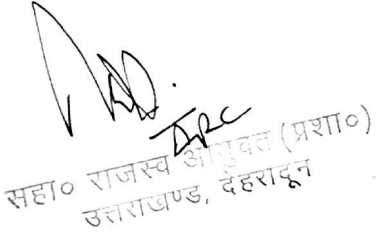 सहा० राजस्व आयुक्त (प्रशा०)
उत्तराखण्ड, देहरादून